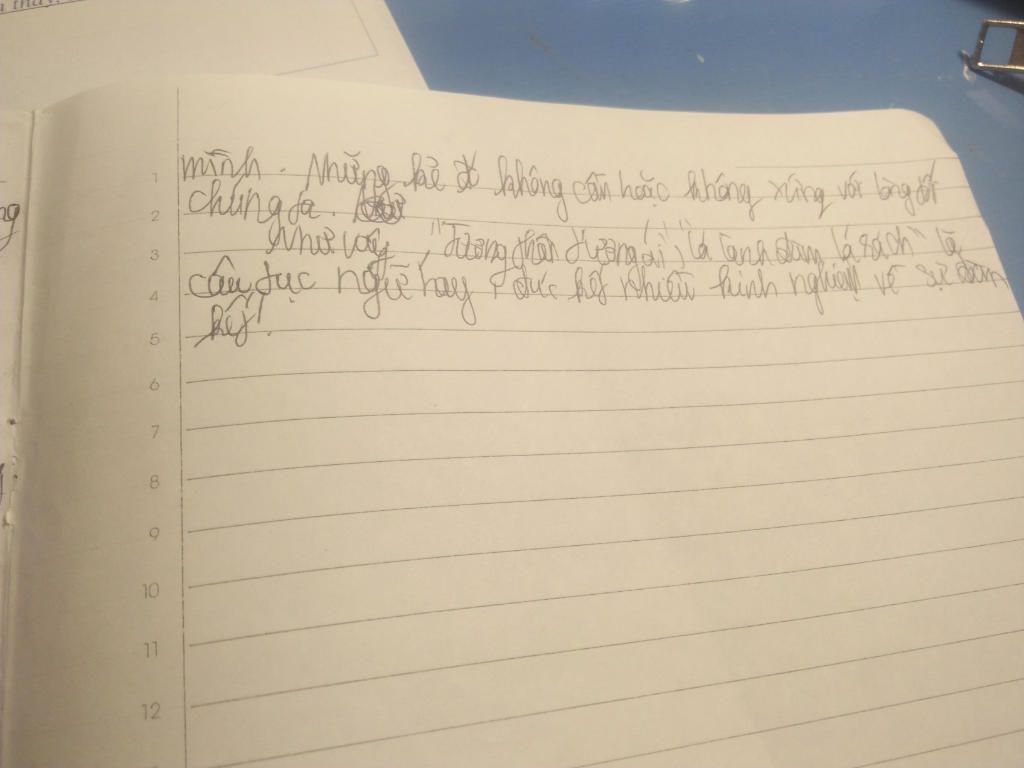 mình. Những kẻ đó không cần hoặc không xứng với lòng tốt
chúng ta.
Như vậy, "Tương thân tương ái", "lá lành đùm lá rách" là
câu tục ngữ hay đúc kết nhiều kinh nghiệm về sự đoàn
kết!
1
2
3
4
5
6
7
8
9
10
11
12